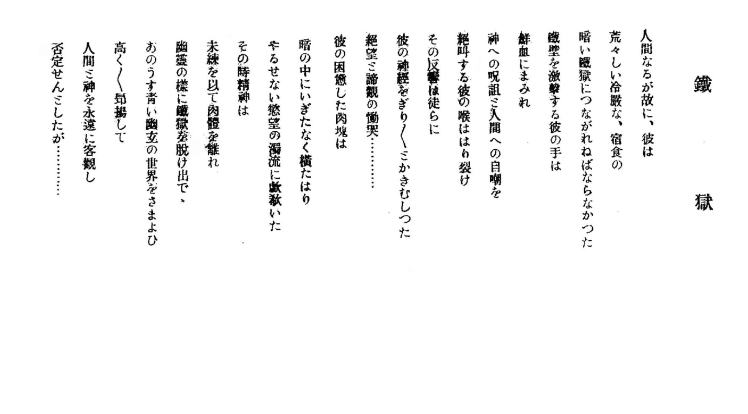 鐵獄
人間なるが故に、彼は
荒々しい冷嚴な、宿食の
暗い鐵獄につながれねばならなかつた
鐵壁を激擊する彼の手は
鮮血にまみれ
神への呪詛と人間への自嘲を
絕叫する彼の喉ははり裂け
その反響は徒らに
彼の神經をぎり〱とかきむしつた
絕望と諦觀の慟哭…………
彼の困憊した肉塊は
暗の中にいぎたなく橫たはり
やるせない慾望の濁流に歔欷いた
その時精神は
未練を以て肉體を離れ
幽靈の樣に鐵獄を脫け出で、
あのうす靑い幽玄の世界をさまよひ
高く〱昻揚して
人間と神を永遠に客觀し
否定せんとしたが…………